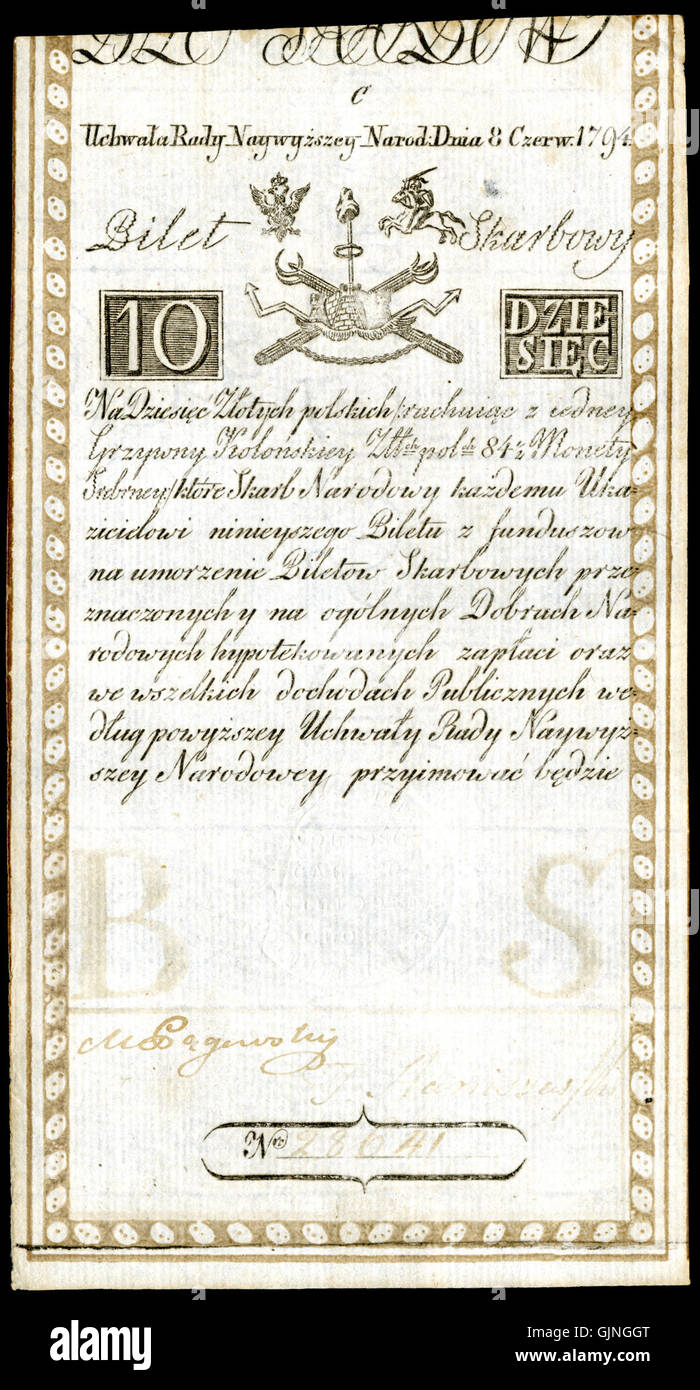 C
Uchwała Rady Naywyższey Narod: Dnia 8 Czerw. 1794
Bilet Skarbowy
10 DZIE
SIĘC
Na Dziesięć Złotych polskich /:rachuiąc z iedney
Grzywny Kolońskiey Złtch polch 84½ Monety
Srebrney:/ które Skarb Narodowy każdemu Uka-
zicielowi ninieyszego Biletu z funduszow
na umorzenie Biletów Skarbowych prze-
znaczonych y na ogólnych Dobrach Na-
rodowych hypotékowanych zapłaci oraz
we wszelkich dochodach Publicznych we-
dług powyższey Uchwały Rady Naywyż-
szey Narodowey przyimować będzie
B S
Nro 28641
alamy stock photo
alamy
Image ID: GJNGGT
www.alamy.com